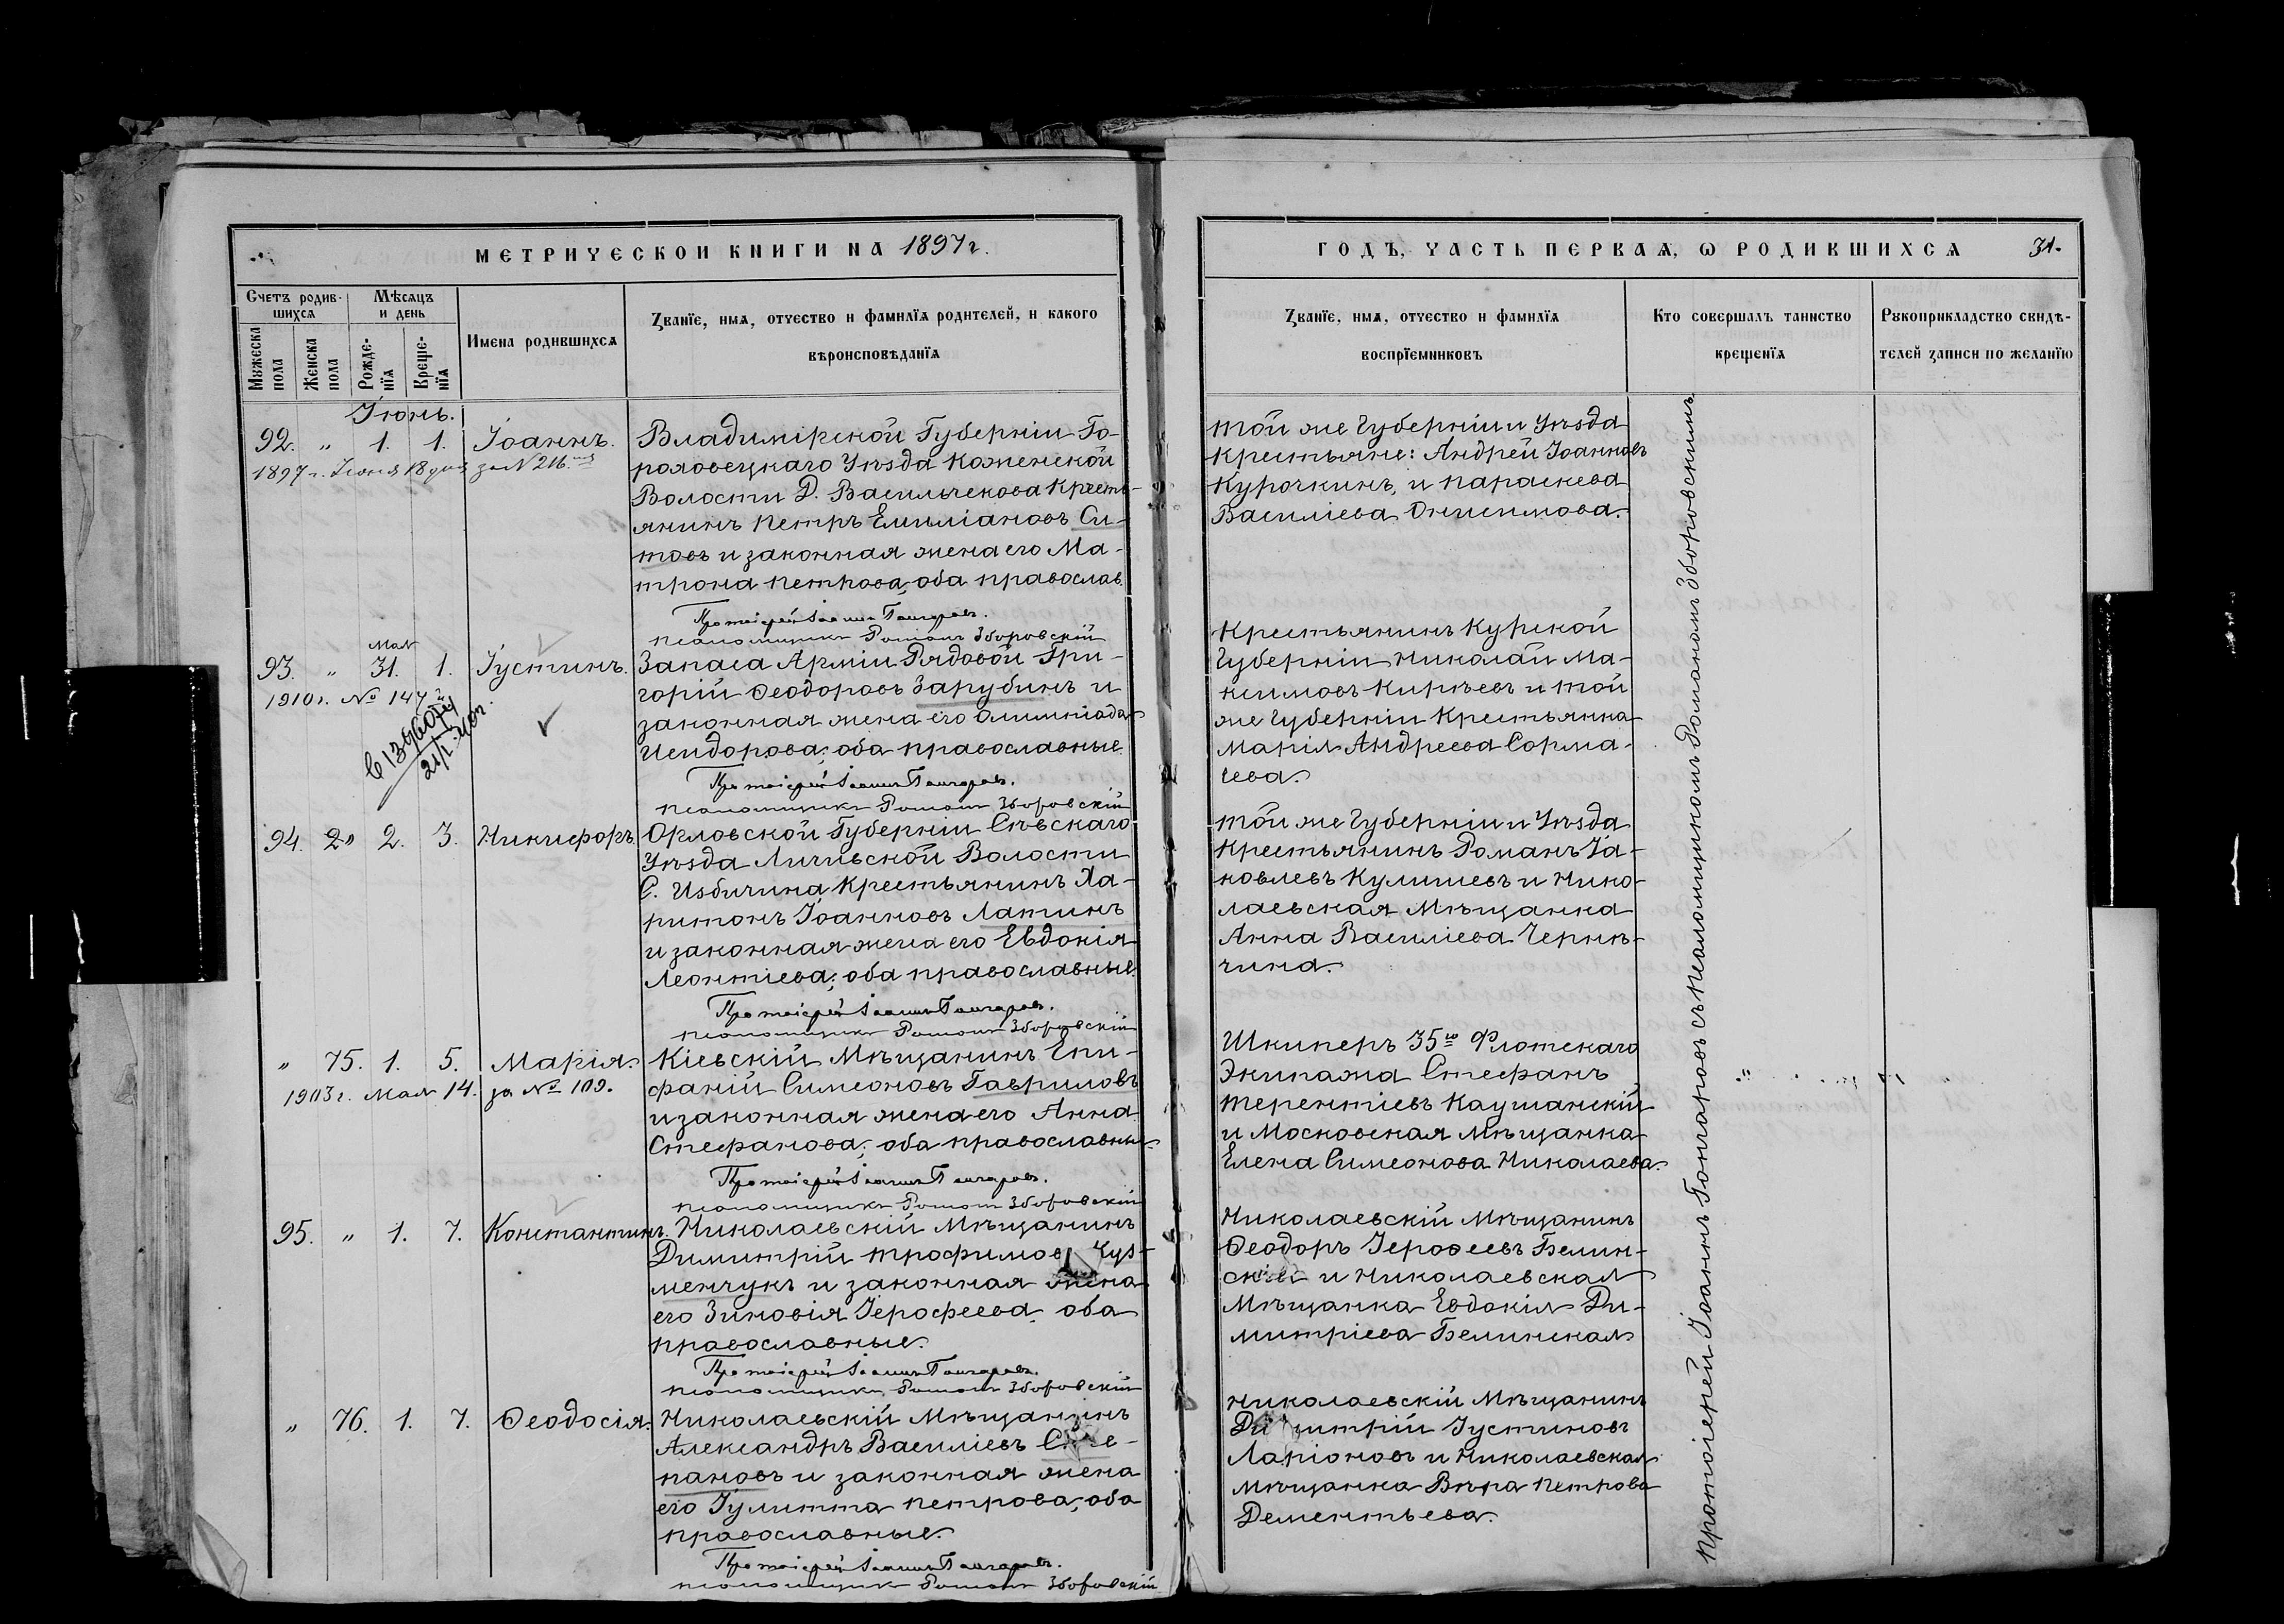 МЕТРИЧЕСКОЙ КНИГИ НА 1897 г.
Счетъ родив-
шихся
Мѣсяцъ
и день
Мужеска
пола
Женска
пола
Рожде-
нїя
Креще-
нїя
Имена родившихся
Званїе, имя, отчество и фамилїя родителей, и какого
вѣроисповѣданїя
Іюнь.
92. " 1. 1. Іоаннъ.
1897 г. Іюня 18 дня за № 216.
Владимірской Губерніи Го-
роховецкаго Уѣзда Каменской
Волости Д. Васильчекова Кресть-
янинъ Петръ Емиліановъ Си-
товъ и законная жена его Ма-
трона Петрова, оба православ.
Протоіерей Іоаннъ Гончаровъ.
Псаломщикъ Романъ Зборовскій
93. " Мая 31. 1. Іустинъ.
1910 г. № 147
Запаса Арміи Рядовой Гри-
горій Ѳеодоровъ Зарубинъ и
законная жена его Олимпіада
Исидорова; оба православные.
Протоіерей Іоаннъ Гончаровъ.
Псаломщикъ Романъ Зборовскій
94. 2. 3. Никифоръ.
Орловской Губерніи Сѣвскаго
Уѣзда Личивской Волости
С. Избичина Крестьянинъ Ха-
ритонъ Іоанновъ Лапинъ
и законная жена его Евдокія
Леонтіева; оба православные.
Протоіерей Іоаннъ Гончаровъ.
Псаломщикъ Романъ Зборовскій
" 75. 1. 5. Марія.
1903 г. Мая 14. за № 109.
Кіевскій Мѣщанинъ Епи-
фаній Симеоновъ Гавриловъ
и законная жена его Анна
Стефанова; оба православны
Протоіерей Іоаннъ Гончаровъ.
Псаломщикъ Романъ Зборовскій
95. " 1. 7. Константинъ.
Николаевскій Мѣщанинъ
Димитрій Трофимов
менчукъ и законная жена
его Зиновія Іерофеева, оба
православные.
Протоіерей Іоаннъ Гончаровъ.
Псаломщикъ Романъ Зборовскій
" 76. 1. 7. Ѳеодосія.
Николаевскій Мѣщанинъ
Александръ Василіевъ Сте-
пановъ и законная жена
его Іулитта Петрова, оба
православные.
Протоіерей Іоаннъ Гончаровъ.
Псаломщикъ Романъ Зборовскій
ГОДЪ, ЧАСТЬ ПЕРВАЯ, Ѡ РОДИВШИХСЯ 31.
Званїе, имя, отчество и фамилїя
воспрїемниковъ
Кто совершалъ таинство
крещенїя
Рукоприкладство свидѣ-
телей записи по желанїю
Той же Губерніи и Уѣзда
Крестьяне: Андрей Іоанновъ
Курочкинъ, и Параскева
Василіева Онисимова.
Крестьянинъ Курской
Губерніи Николай Ма-
ксимовъ Кирѣевъ и той
же Губерніи Крестьянка
Марія Андреева Сорма-
чева.
Той же Губерніи и Уѣзда
Крестьянинъ Романъ Іа-
ковлевъ Кулишевъ и Нико-
лаевская Мѣщанка
Анна Василіева Черни-
чина.
Шкиперъ 35го Флотскаго
Экипажа Стефанъ
Терентіевъ Каушанскій
и Московская Мѣщанка
Елена Симеонова Николаева.
Николаевскій Мѣщанинъ
Ѳеодоръ Іероѳеевъ Белин-
скій и Николаевская
Мѣщанка Евдокія Ди-
митріева Белинская
Николаевскій Мѣщанинъ
Димитрій Іустиновъ
Ларіоновъ и Николаевская
Мѣщанка Вѣра Петрова
Дементьева.
Протоіерей Іоаннъ Гончаровъ съ псаломщикомъ Романомъ Зборовскимъ